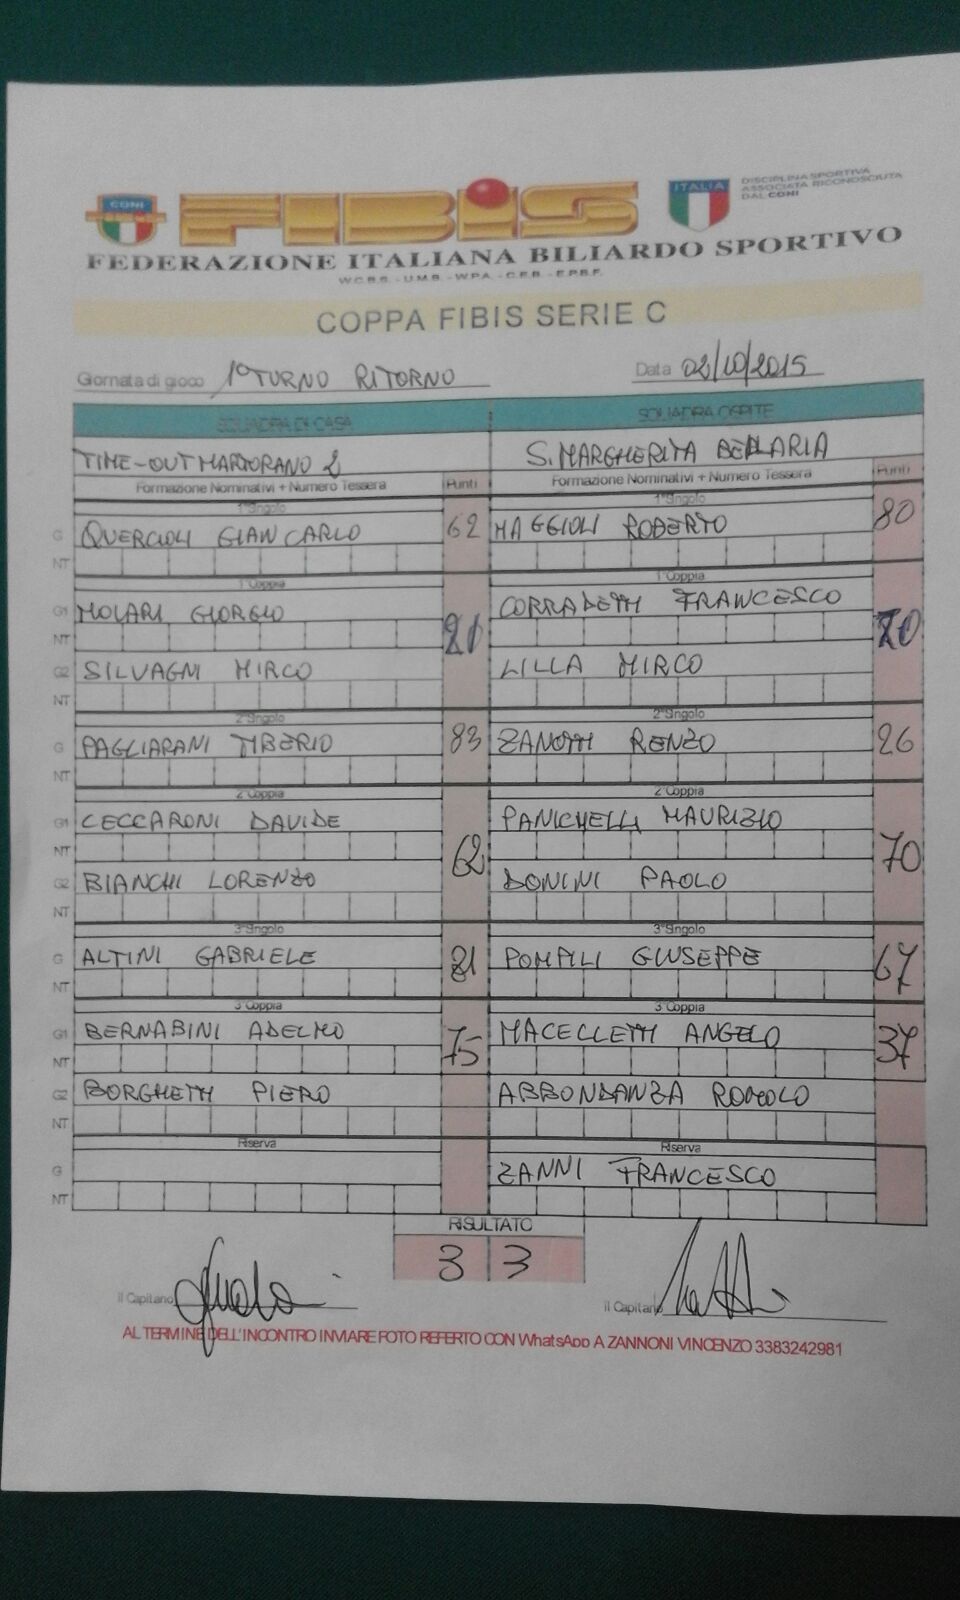 CONI
FIBIS
ITALIA
DISCIPLINA SPORTIVA
ASSOCIATA RICONOSCIUTA
DAL CONI
FEDERAZIONE ITALIANA BILIARDO SPORTIVO
W.C.B.S. - U.M.B. - W.P.A. - C.E.B. - E.P.B.F.
COPPA FIBIS SERIE C
Giornata di gioco 1° TURNO RITORNO Data 02/10/2015
SQUADRA DI CASA SQUADRA OSPITE
TIME-OUT MARTORANO 2 S. MARGHERITA BELLARIA
Formazione Nominativi + Numero Tessera Punti Formazione Nominativi + Numero Tessera Punti
1°Singolo 1°Singolo
G QUERCIOLI GIANCARLO 62 MAGGIOLI ROBERTO 80
NT
1°Coppia 1°Coppia
G1 MOLARI GIORGIO CORRADETTI FRANCESCO
NT 70
G2 SILVAGNI MIRCO LILLA MIRCO
NT
2°Singolo 2°Singolo
G PAGLIARANI TIBERIO 83 ZANOTTI RENZO 26
NT
2°Coppia 2°Coppia
G1 CECCARONI DAVIDE PANICHELLI MAURIZIO
NT 62 70
G2 BIANCHI LORENZO DONINI PAOLO
NT
3°Singolo 3°Singolo
G ALTINI GABRIELE 81 POMPILI GIUSEPPE 67
NT
3°Coppia 3°Coppia
G1 BERNABINI ADELMO 75 MACELLETTI ANGELO 37
NT
G2 BORGHETTI PIERO ABBONDANZA ROMOLO
NT
Riserva Riserva
G ZANNI FRANCESCO
NT
RISULTATO
3 3
il Capitano il Capitano
AL TERMINE DELL'INCONTRO INVIARE FOTO REFERTO CON WhatsApp A ZANNONI VINCENZO 3383242981